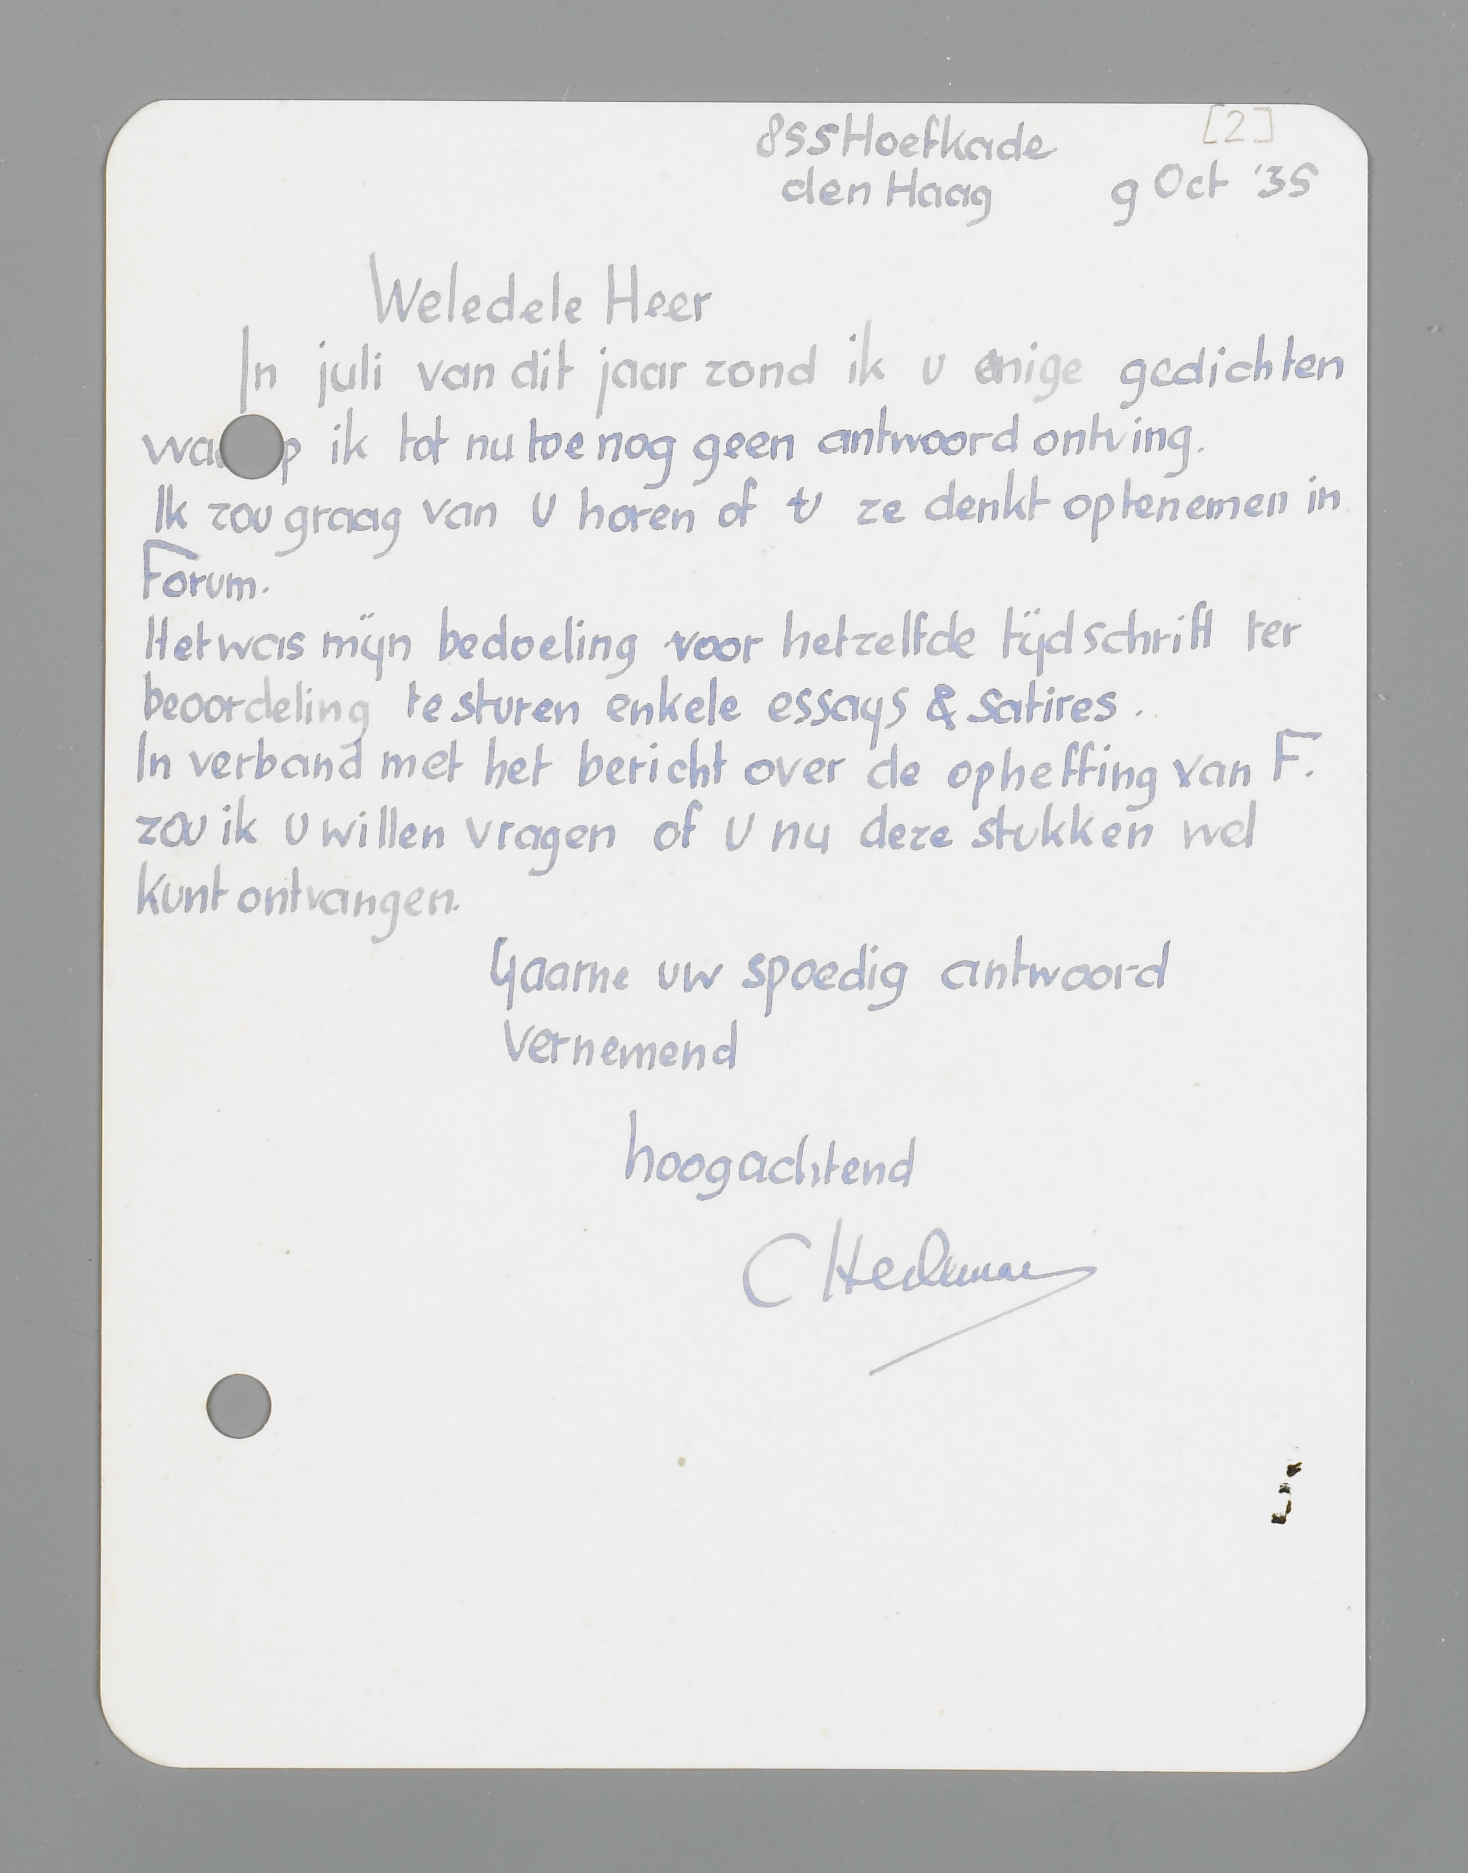 [2]
855 Hoefkade
den Haag 9 Oct '35
Weledele Heer
In juli van dit jaar zond ik u enige gedichten
ik tot nu toe nog geen antwoord ontving.
Ik zou graag van U horen of U ze denkt optenemen in
Forum.
Het was mijn bedoeling voor hetzelfde tijdschrift ter
beoordeling te sturen enkele essays & satires.
In verband met het bericht over de opheffing van F.
zou ik U willen vragen of U nu deze stukken wel
kunt ontvangen.
Gaarne uw spoedig antwoord
vernemend
hoogachtend
C